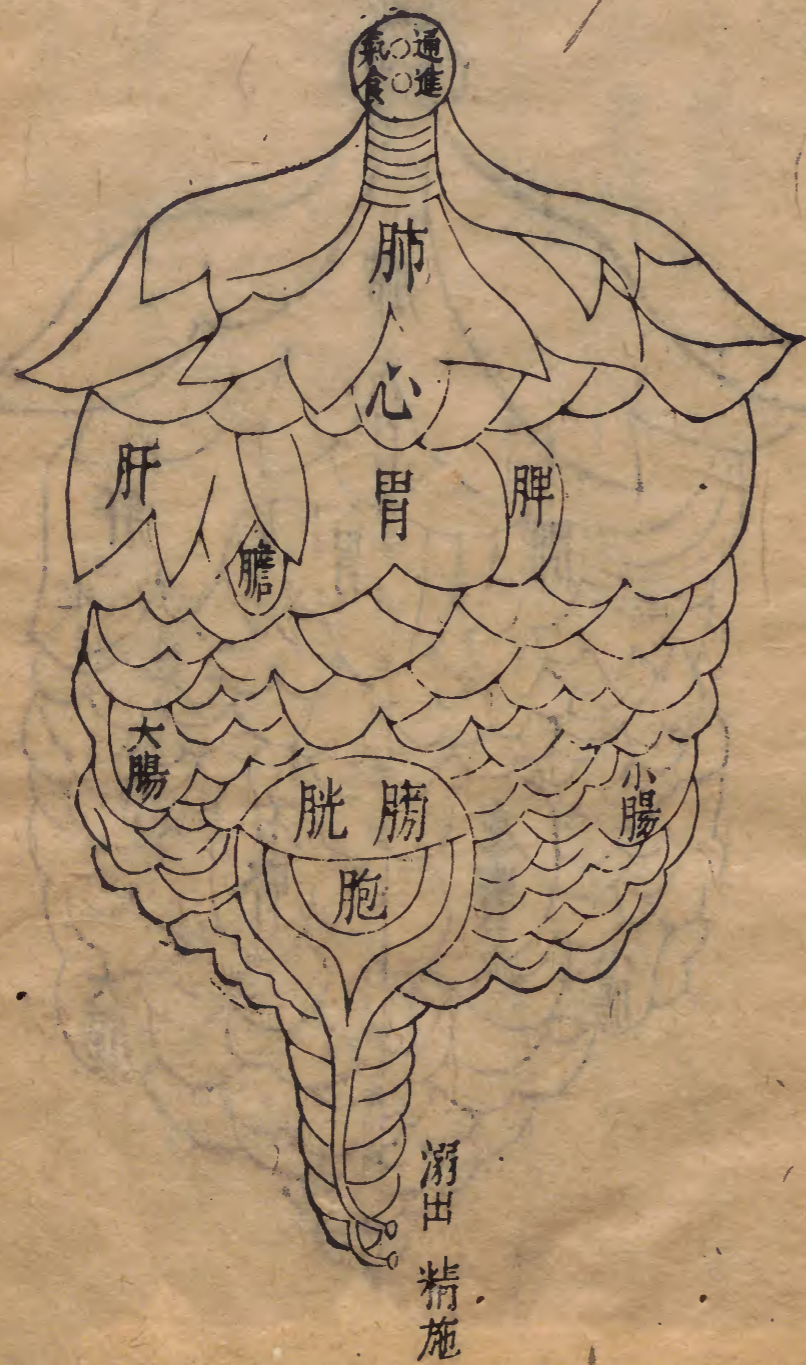 通○氣
進○食
肺
心
肝
胃
脾
膽
大腸
小腸
膀胱
胞
溺出
精施